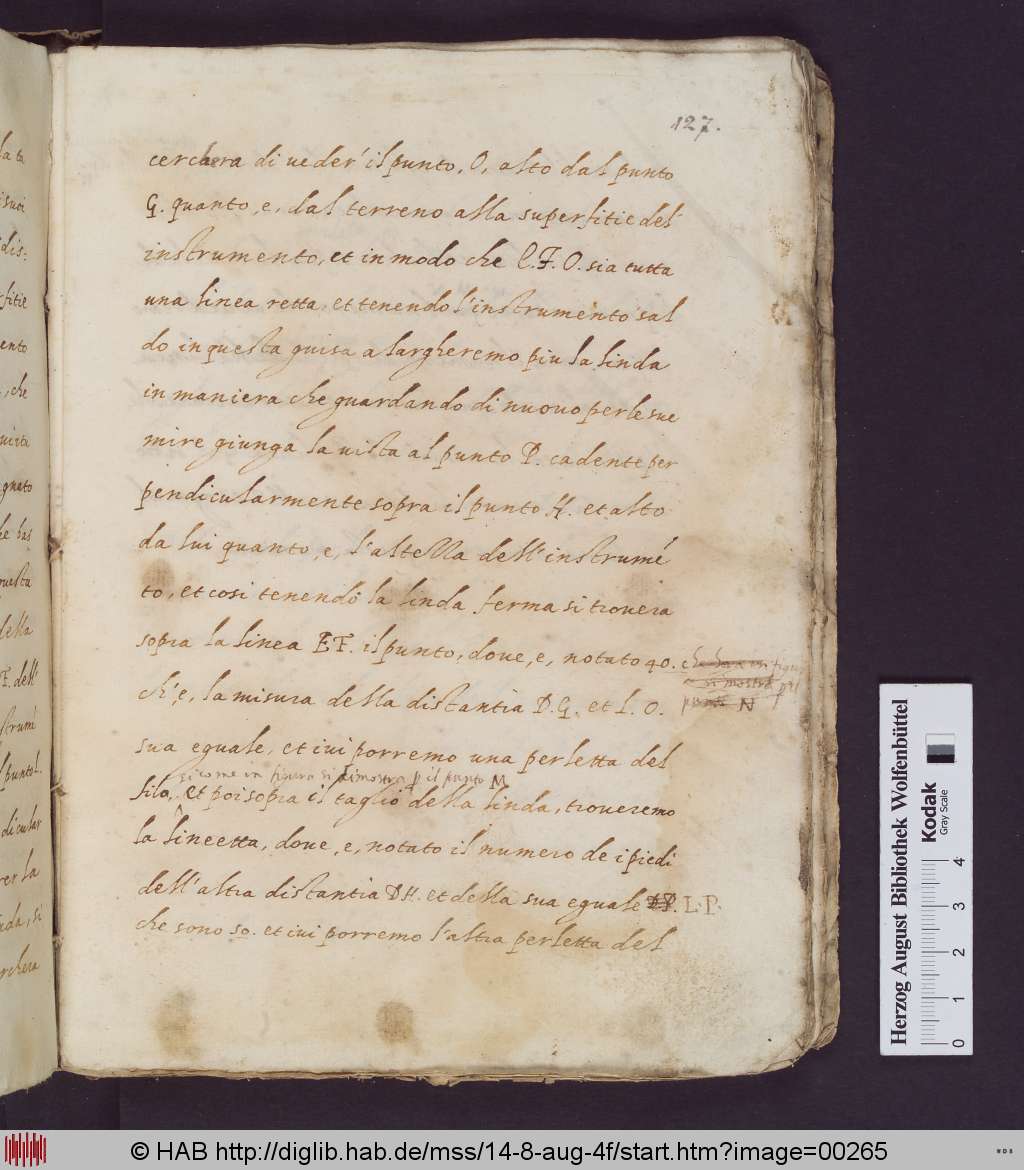 127.
cerchera di ueder' il punto, O, alto dal punto
G. quanto, e, dal terreno alla superfitie del'
instrumento, et in modo che L. F. O. sia tutta
una linea retta, et tenendo l'instrumento sal
do in questa guisa alargheremo piu la linda
in maniera che guardando di nuouo per le sue
mire giunga la uista al punto P. cadente per
pendicularmente sopra il punto H. et alto
da lui quanto, e, l'altezza dell'instrumẽ
to, et cosi tenendo la linda ferma si trouera
sopra la linea EF. il punto, doue, e, notato 40.
si mostra
punto N
ch'e, la misura della distantia D. G. et L. O.
sua eguale, et iui porremo una perletta del
si come in figura si dimostra p il punto M
filo, et poi sopra il taglio della linda, troueremo
la lineetta, doue, e, notato il numero de i piedi
dell'altra distantia DH. et della sua eguale L. P.
che sono 50. et iui porremo l'altra perletta del
la ta
dis:
fitie
ento
, che
gnato
he bas
questa
della
F. dell'
strumẽ
l punto L.
dicular
er la
nda, si
rchera
Herzog August Bibliothek Wolfenbüttel
Kodak
Gray Scale
0 1 2 3 4
© HAB http://diglib.hab.de/mss/14-8-aug-4f/start.htm?image=00265